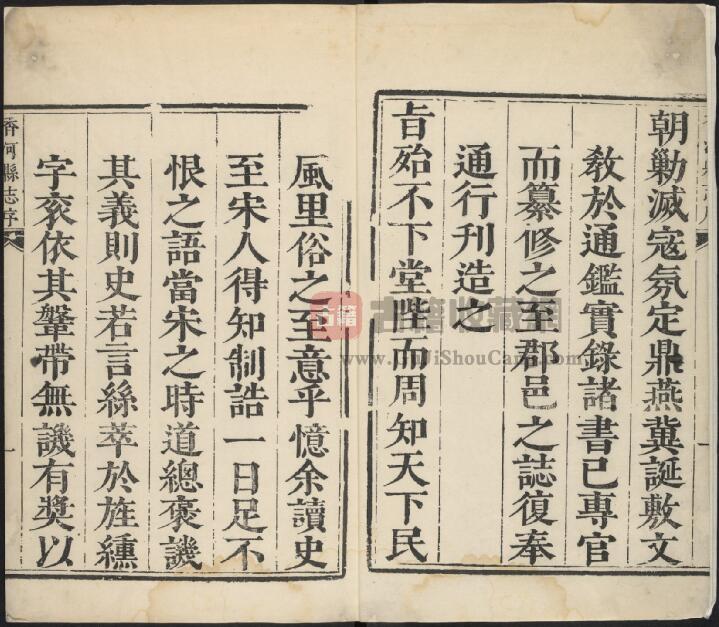 朝勦滅寇氛定鼎燕冀誕敷文
敎於通鑑實錄諸書已專官
而纂修之至郡邑之誌復奉
通行刊造之
旨殆不下堂陛而周知天下民
風里俗之至意乎憶余讀史
至宋人得知制誥一日足不
恨之語當宋之時道總褒譏
其義則史若言絲萃於旌纁
字袞依其鞶帶無譏有奬以
香河縣志序
一
古籍收藏網
www.GuJiShouCang.com
古籍